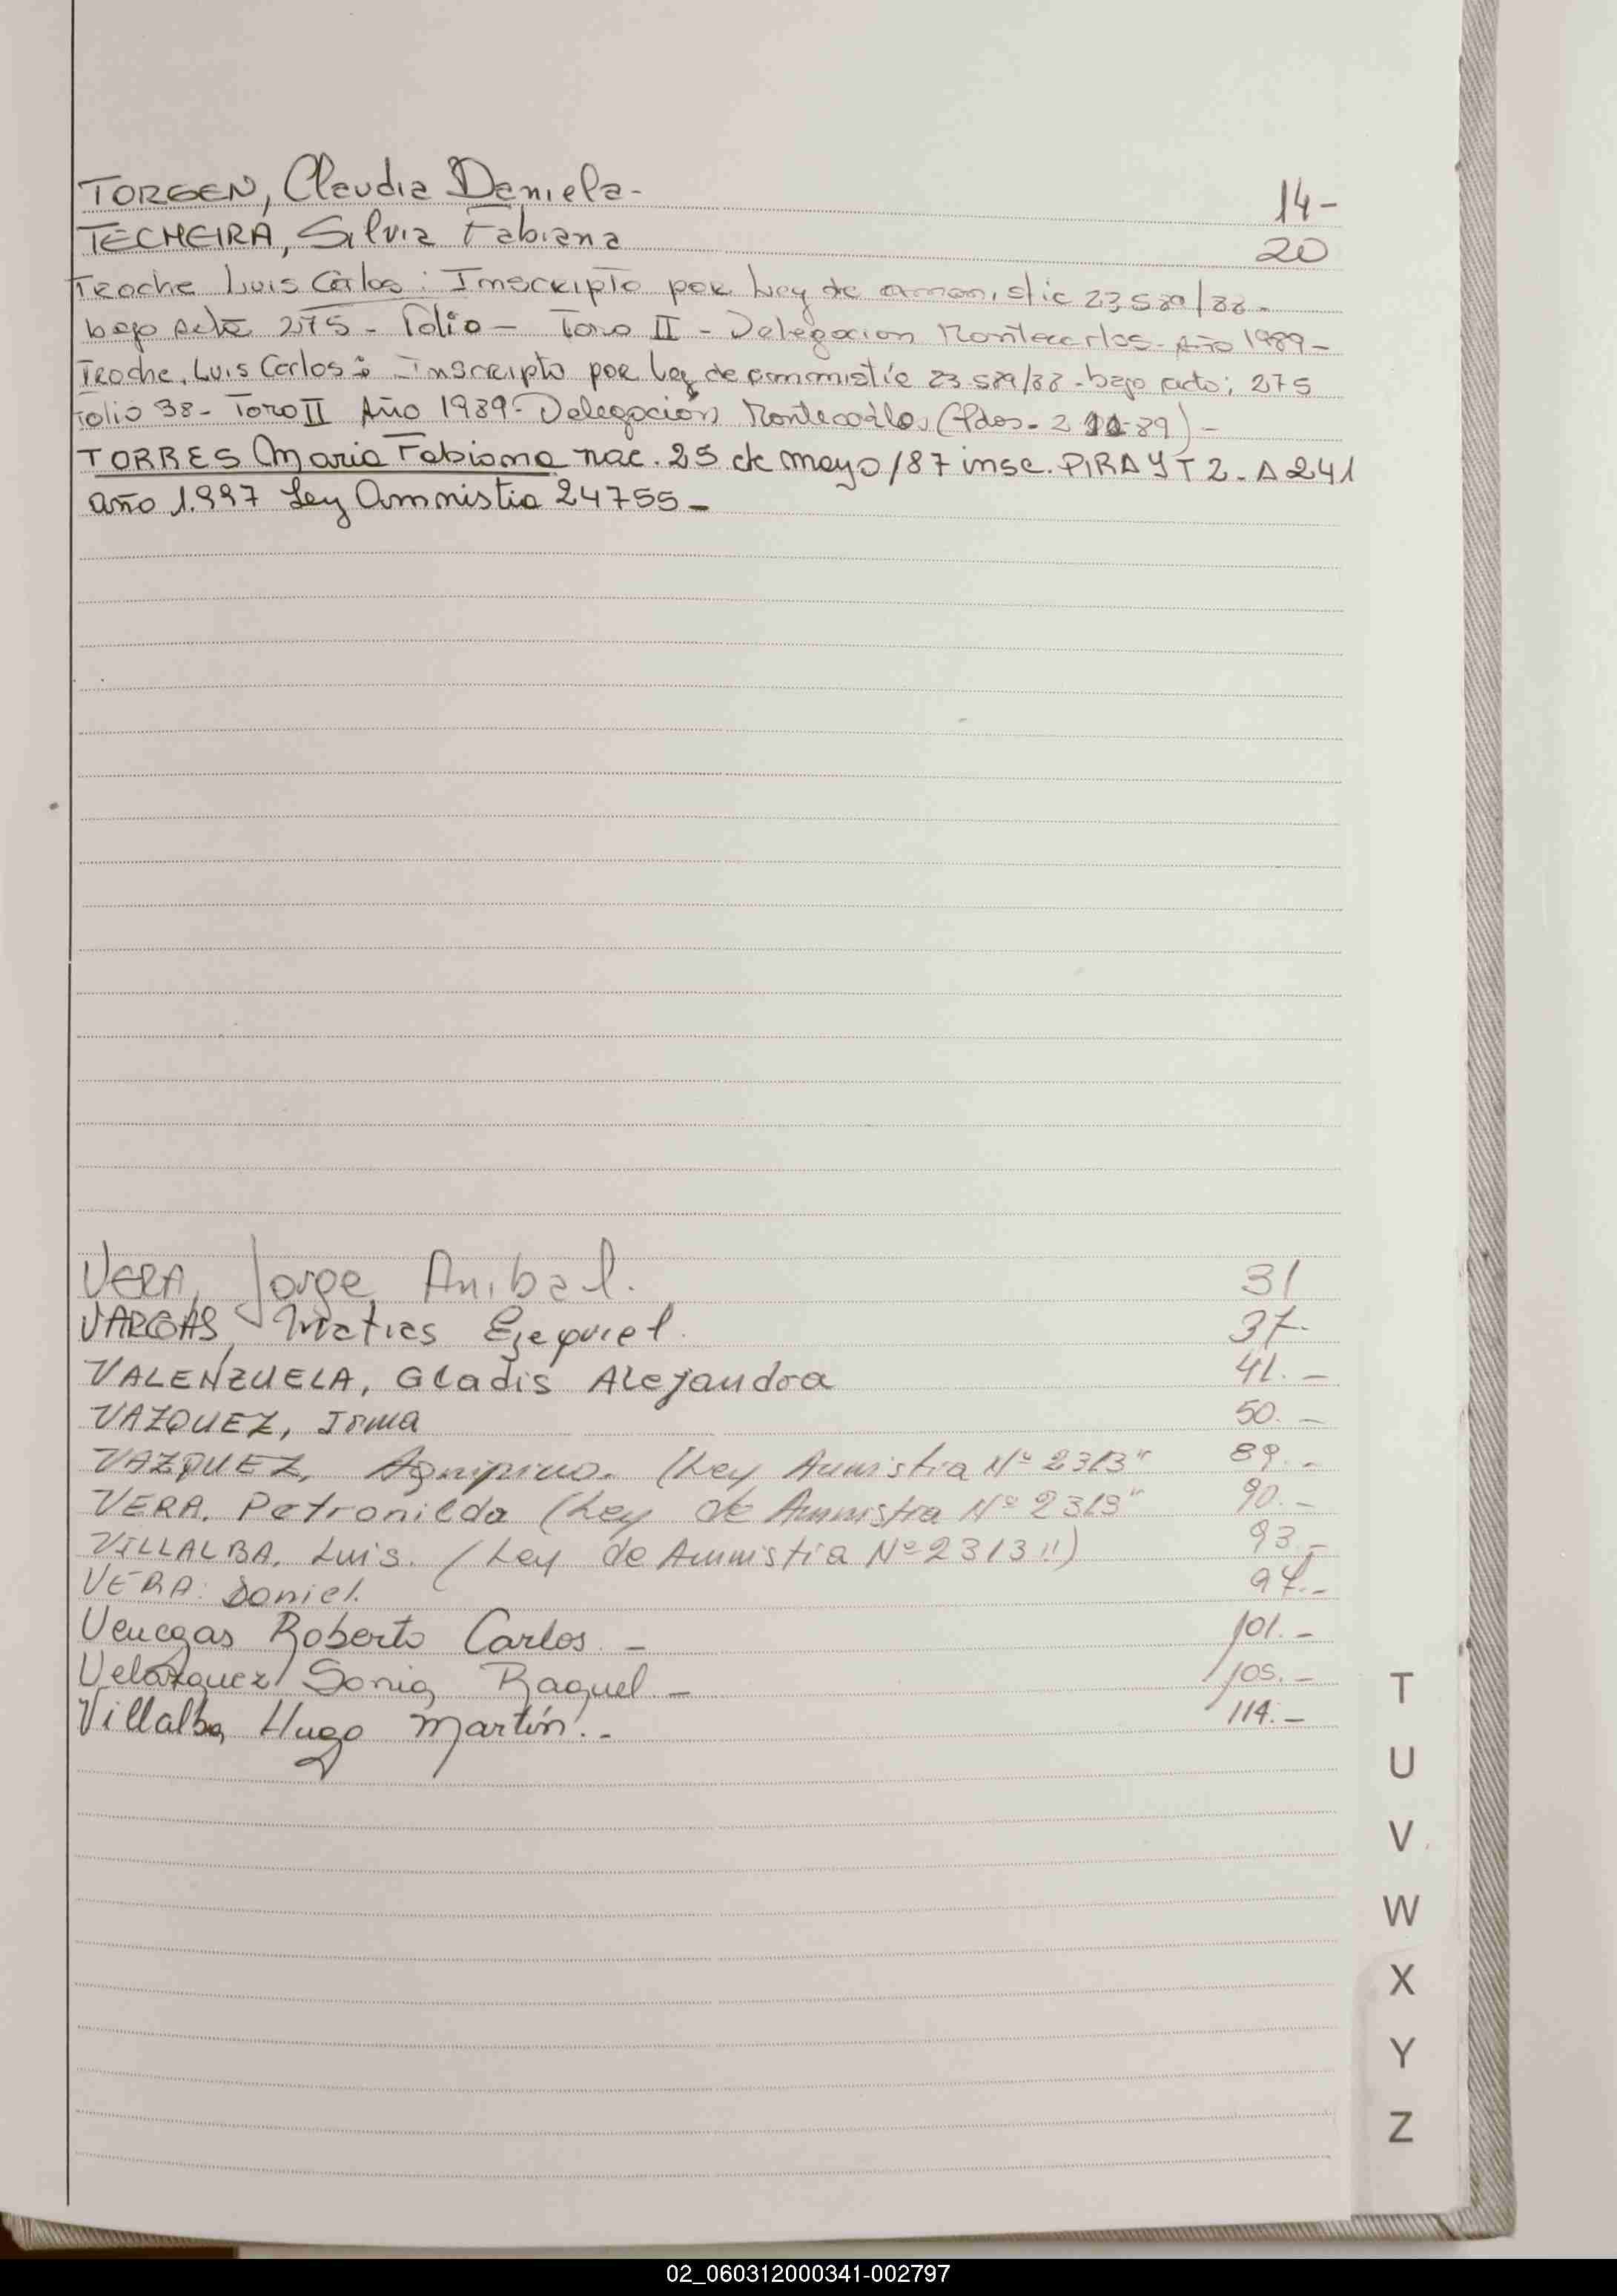 TORGEN, Claudia Daniela- 14-
TECHEIRA, Silvia Fabiana 20
Troche Luis Carlos: Inscripto por Ley de amonistic 23580/88-
bajo acta 275- Folio- Tomo II - Delegacion Montecarlos- Año 1989-
Troche, Luis Carlos: Inscripto por Ley de ammistíe 23.589/88-bajo acto; 275
folio 38- Tomo II Año 1989- Delegación Montecarlo, (Pdos- 2 11-89)-
TORRES Maria Fabiana nac. 25 de mayo/87 insc. PIRAY T 2- A 241
año 1.997 Ley Amnistia 24755-
VERA, Jorge Anibal. 31
VARGAS, Matias Ezequiel. 37-
VALENZUELA, Gladis Alejandra 41.-
VAZQUEZ, Irma 50.-
VAZQUEZ, Agripino. (Ley Amnistia Nº 2313" 89.-
VERA, Petronilda (Ley de Amnistia Nº 2313" 90.-
VILLALBA, Luis. (Ley de Amnistia Nº 2313") 93.-
VERA: Daniel. 97.-
Venegas Roberto Carlos.- 101.-
Velazquez Sonia Raquel.- 105.-
Villalba, Hugo Martín.- 114.-
T
U
V
W
X
Y
Z
02_060312000341-002797